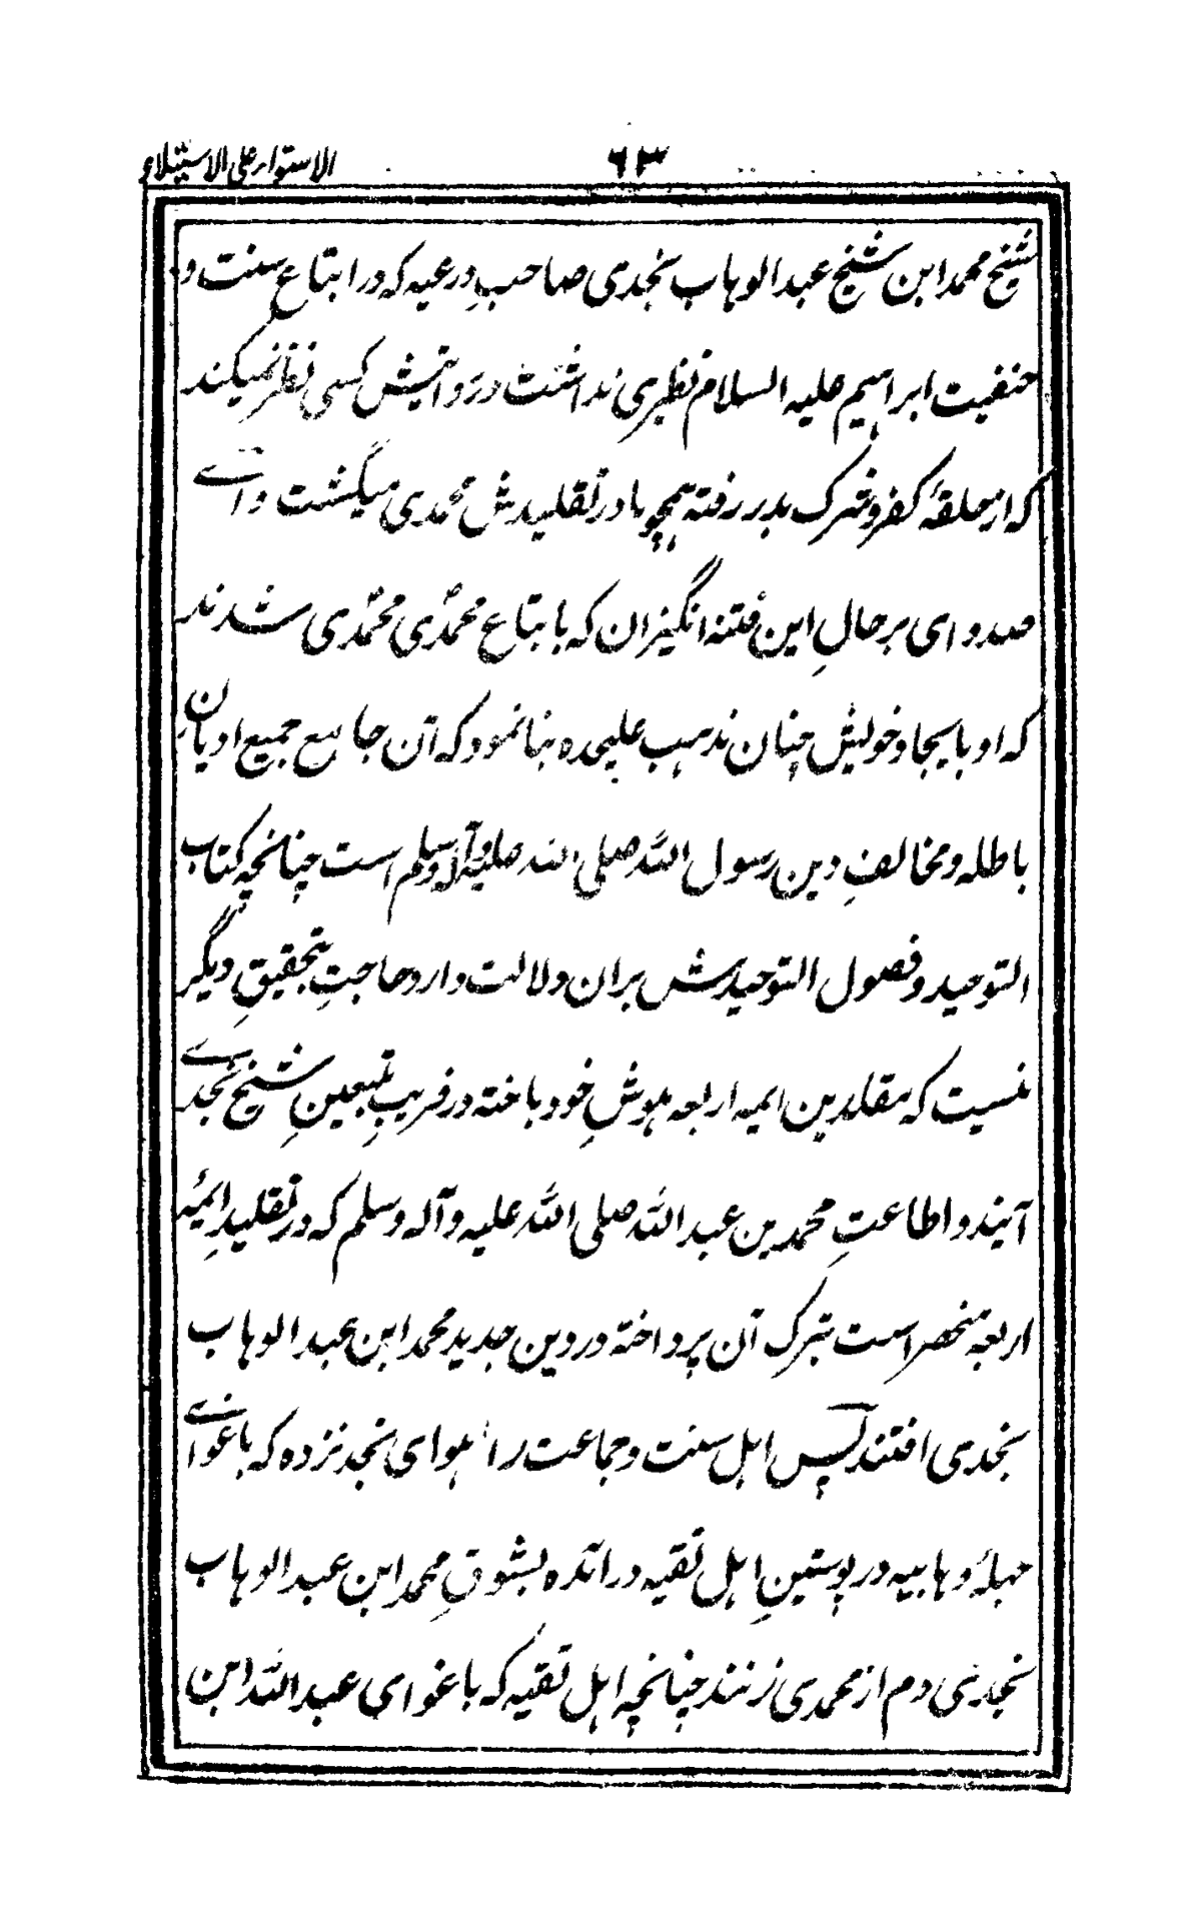 ٦٣ الاستواء علی الاستیلاء
شیخ محمد ابن شیخ عبدالوهاب نجدی صاحبِ درعیه که در اتباع سنت و
حنفیت ابراهیم علیه السلام نظیری نداشت در رَوانیش کسی نظر نمیکند
که از حلقهٔ کفر و شرک بدر رفته همچو ما در تقلیدش محمدی میگشت وائے
صد وای بر حالِ این فتنه انگیزان که باتباع محمدؐی محمدؐی شدند
که او بایجاد خویش چنان مذهب علیحده بنا نمود که آن جامع جمیع ادیان
باطله و مخالفِ دین رسول اللّٰه صلی الله علیه وآله وسلم است چنانچه کتاب
التوحید و فصول التوحیدش بران دلالت دارد حاجتِ تحقیقِ دیگر
نیست که مقلدین ایمه اربعه هوشِ خود باخته در فریبِ متبعینِ شیخ نجدے
آیند و اطاعتِ محمد بن عبد اللّٰه صلی اللّٰه علیه وآله وسلم که در تقلیدِ ایمهٔ
اربعه منحصر است بترک آن پرداخته در دین جدید محمد ابن عبد الوهاب
نجدی افتند پس اهل سنت و جماعت را هوای نجد نزده که باغوائے
جهلهٔ وهابیه در پوستینِ اهل تقیه در آمده بشوقِ محمد ابن عبد الوهاب
نجدی دم از محمدی زنند چنانچه اهل تقیه که باغوای عبد اللّٰه ابن